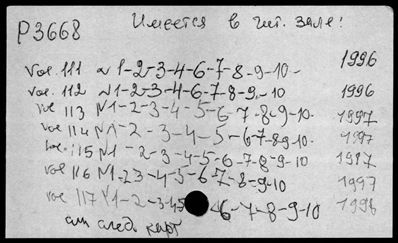 P3668 Имеется в чит. зале!
Vol. 111 N 1-2-3-4-6-7-8-9-10- 1996
Vol. 112 N1-2-3-4-6-7-8-9.-10 1996
Vol 113 N1-2-3-4-5-6-7-8-9-10. 1997
Vol 114 N1-2-3-4-5-6-7-8-9-10 1997
Vol. 115 N1-2-3-4-5-6-7-8-9-10 1997
Vol 116 N1-23-4-5-6-7-8-9-10 1997
Vol 117 N1-2-3-45 6-7-8-9-10 1998
см след карт